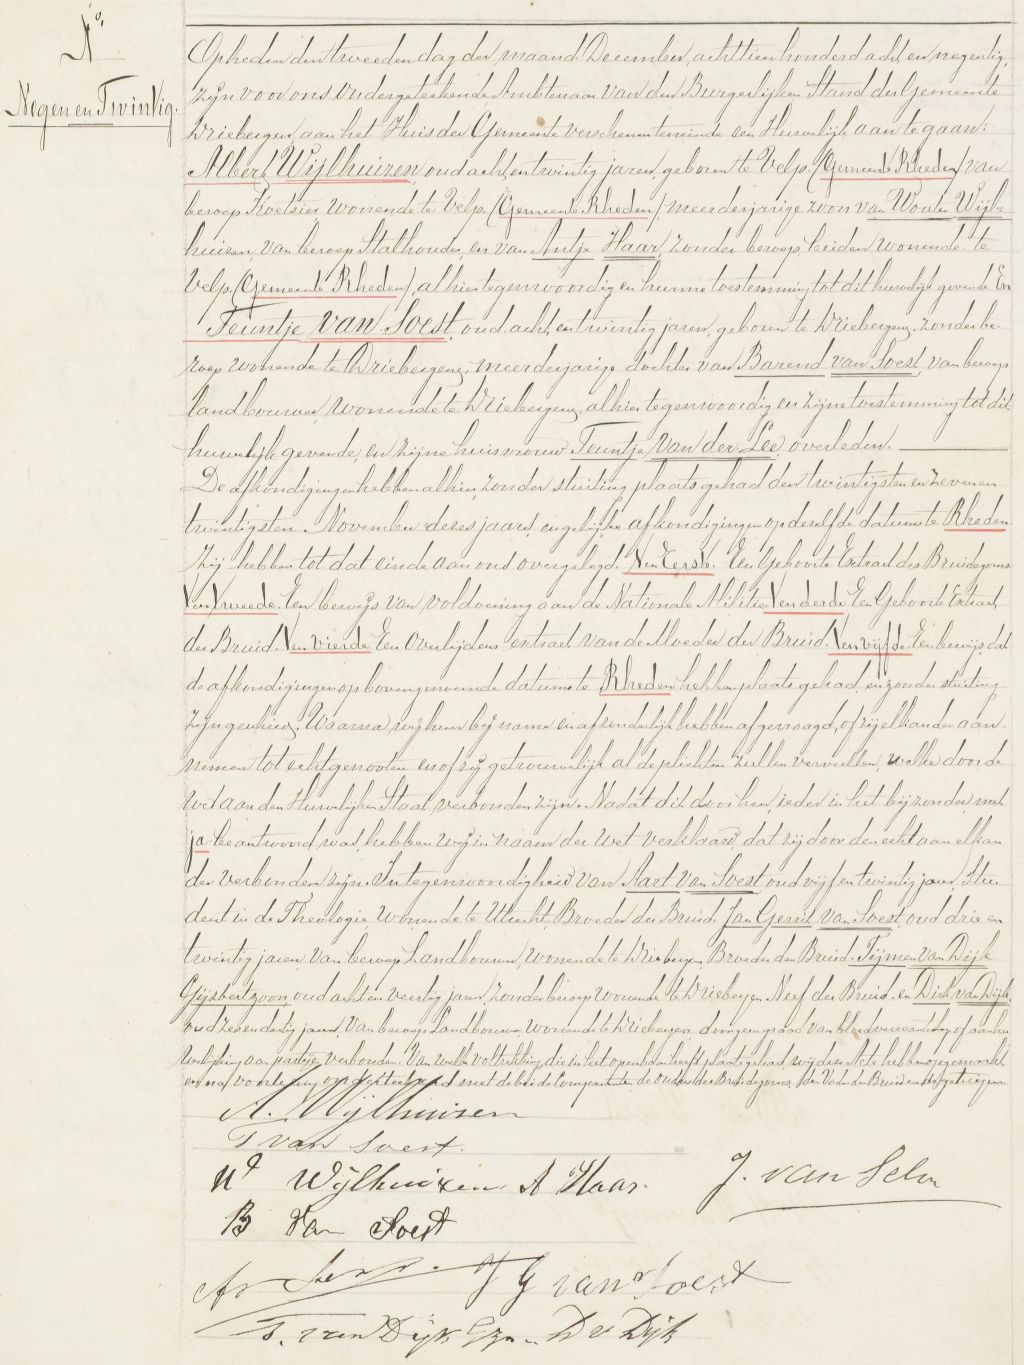 N°
Negen en Twintig.
Op heden den tweeden dag der maand December achttien honderd acht en negentig,
zijn voor ons Ondergeteekende Ambtenaar van den Burgerlijken Stand der Gemeente
Driebergen aan het Huis der Gemeente verschenen teneinde een Huwelijk aan te gaan:
Albert Wijlhuizen, oud acht en twintig jaren, geboren te Velp, (Gemeente Rheden) van
beroep Koetsier, wonende te Velp, (Gemeente Rheden) meerderjarige zoon van Wouter Wijl=
huizen, van beroep Stalhouder, en van Antje Haar, zonder beroep, beiden wonende te
Velp, (Gemeente Rheden), alhier tegenwoordig en hunne toestemming tot dit huwelijk gevende En
Teuntje van Soest, oud acht en twintig jaren, geboren te Driebergen, zonder be-
roep wonende te Driebergen, meerderjarige dochter van Barend van Soest, van beroep
landbouwer, wonende te Driebergen, alhier tegenwoordig en zijne toestemming tot dit
huwelijk gevende, en zijne huisvrouw Teuntje van der Lee, overleden.
De afkondigingen hebben alhier, zonder stuiting plaats gehad den twintigsten en zeven en
twintigsten November dezes jaars, en gelijke afkondigingen op derzelfde datums te Rheden
Zij hebben tot dat einde aan ons overgelegd. Ten Eerste. Een Geboorte Extract des Bruidegoms
Ten Tweede, Een bewijs van voldoening aan de Nationale Militie Ten derde Een Geboorte Extract
der Bruid. Ten vierde Een Overlijdens extract van de Moeder der Bruid. Ten vijfde Een bewijs dat
de afkondigingen op bovengenoemde datums te Rheden hebben plaats gehad, en zonder stuiting
zijn gebleven. Waarna wij hun bij name en afzonderlijk hebben afgevraagd, of zij elkander aan-
nemen tot echtgenooten en of zij getrouwelijk al de plichten zullen vervullen, welke door de
wet aan den Huwelijken Staat verbonden zijn. Nadat dit door hen, ieder in het bijzonder met
ja beantwoord was, hebben wij in naam der wet verklaard, dat zij door den echt aan elkan
der verbonden zijn. In tegenwoordigheid van Aart van Soest oud vijf en twintig jaar, Stu
dent in de Theologie, wonende te Utrecht, Broeder der Bruid. Jan Gerrit van Soest, oud drie en
twintig jaren van beroep Landbouwer, wonende te Driebergen, Broeder der Bruid. Tijmen van Dijk
Gijsbertzoon, oud acht en veertig jaren, zonder beroep wonende te Driebergen Neef der Bruid. en Dirk van Dijk,
oud zeven dertig jaren, van beroep Landbouwer wonende te Driebergen, door geen graad van bloedverwantschap of aanhu
welijking aan partije verbonden. Van welke voltrekking, die in het openbaar heeft plaats gehad, wij deze Acte hebben opgemaakt
en na voorlezing onderteekend met de beide Comparanten de ouders des Bruidegoms, den Vader der Bruid en de getuigen
A. Wijlhuizen
T van Soest.
Wr Wijlhuizen A Haar.
J. van Selm
B van Soest
J G van Soest
T. van Dijk Gzn. D v Dijk